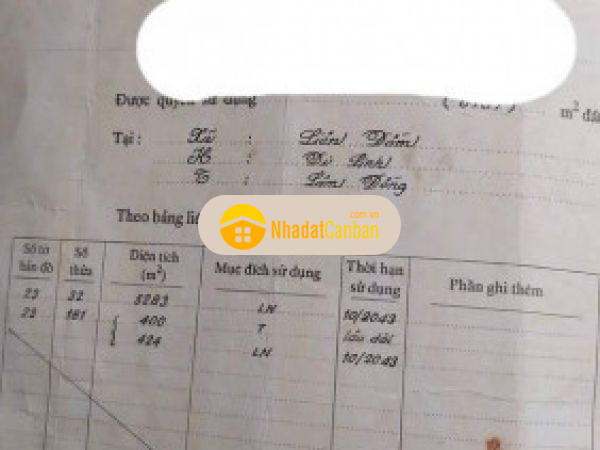 Được quyền sử dụng m² đất
Tại : Xã : Liên Đầm
H : Di Linh
T : Lâm Đồng
Theo bảng liệ
.com.vn
NhadatCanban
Số tờ bản đồ Số thửa Diện tích (m²) Mục đích sử dụng Thời hạn sử dụng Phần ghi thêm
23 32 5283 LN 10/2043
23 181 { 400 T lâu dài
424 LN 10/2043